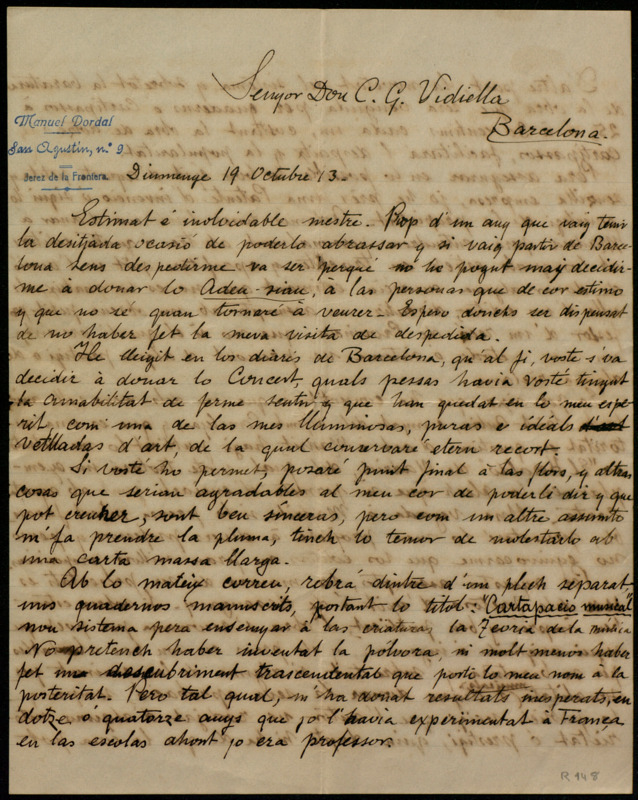 Senyor Don C. G. Vidiella
Barcelona.
Manuel Dordal
San Agustín, n.º 9
Jerez de la Frontera.
Diumenge 19 Octubre 13.
Estimat é inolvidable mestre. Prop d'un any que vaig tenir
la desitjada ocasió de poderlo abrassar y si vaig partir de Barce-
lona sens despedirme va ser perqué no ho pogut may decidir-
me á donar lo Adeu-siau, á las personas que de cor estimo
y que no sé quan tornaré á veurer. Espero donchs ser dispensat
de no haber fet la meva visita de despedida.
He llegit en los diaris de Barcelona, qu'al fi, vosté s'va
decidir à donar lo Concert, quals pessas havia vosté tingut
la amabilitat de ferme sentir y que han quedat en lo meu espe-
rit, com una de las mes lluminosas, puras e idéals
vetlladas d'art, de la qual conservaré etern recort.
Si vosté ho permet, posaré punt final à las flors, y altras
cosas que serian agradables al meu cor de poderli dir y que
pot creurer, sont ben sinceras, pero com un altre assumto
m'fa prendre la pluma, tinch lo temor de molestarlo ab
una carta massa llarga.
Ab lo mateix correu, rebrá dintre d'un plech separat
uns quadernos manuscrits, portant lo titol: "Cartapacio musical"
nou sistema pera ensenyar á las criaturas la Teoria de la musica
No pretench haber inventat la polvora, ni molt menos haber
fet un descubriment trascendental que porti lo meu nom à la
posteritat. Pero tal qual, m'ha donat resultats inesperats, en
dotze ó quatorze anys que jo l'havia experimentat à França
en las escolas ahont jo era professor.
R 148